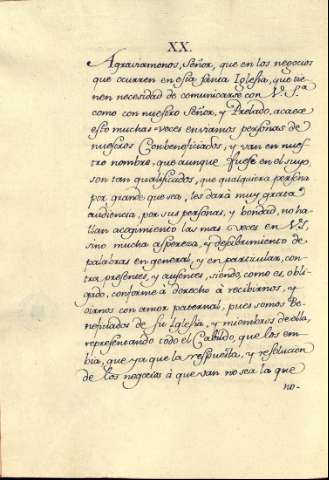 XX.
Agraviamenos, Señor, que en los negocios
que ocurren en esta Santa Iglesia, que tie-
nen necesidad de comunicarse con V. S.ª
como con nuestro Señor, y Prelado, acaece
esto muchas veces enviamos personas de
nuestros Conbeneficiados, y van en nues-
tro nombre, que aunque fuese en el suyo,
son tan qualificados, que qualquiera persona
por grande que sea, les dará muy grata
audiencia, por sus personas, y bondad, no ha-
llan acogimiento las mas veces en V. S,
sino mucha aspereza, y desabrimiento de
palabras en general, y en particular, con-
tra presentes, y ausentes, siendo, como es, obli-
gado, conforme à derecho à recibirnos, y
oirnos con amor paternal, pues somos Be-
neficiados de su Iglesia, y miembros de ella,
representando todo el Cabildo, que los em-
bia, que ya que la respuesta, y resolucion
de los negocios à que van no sea la que
no-